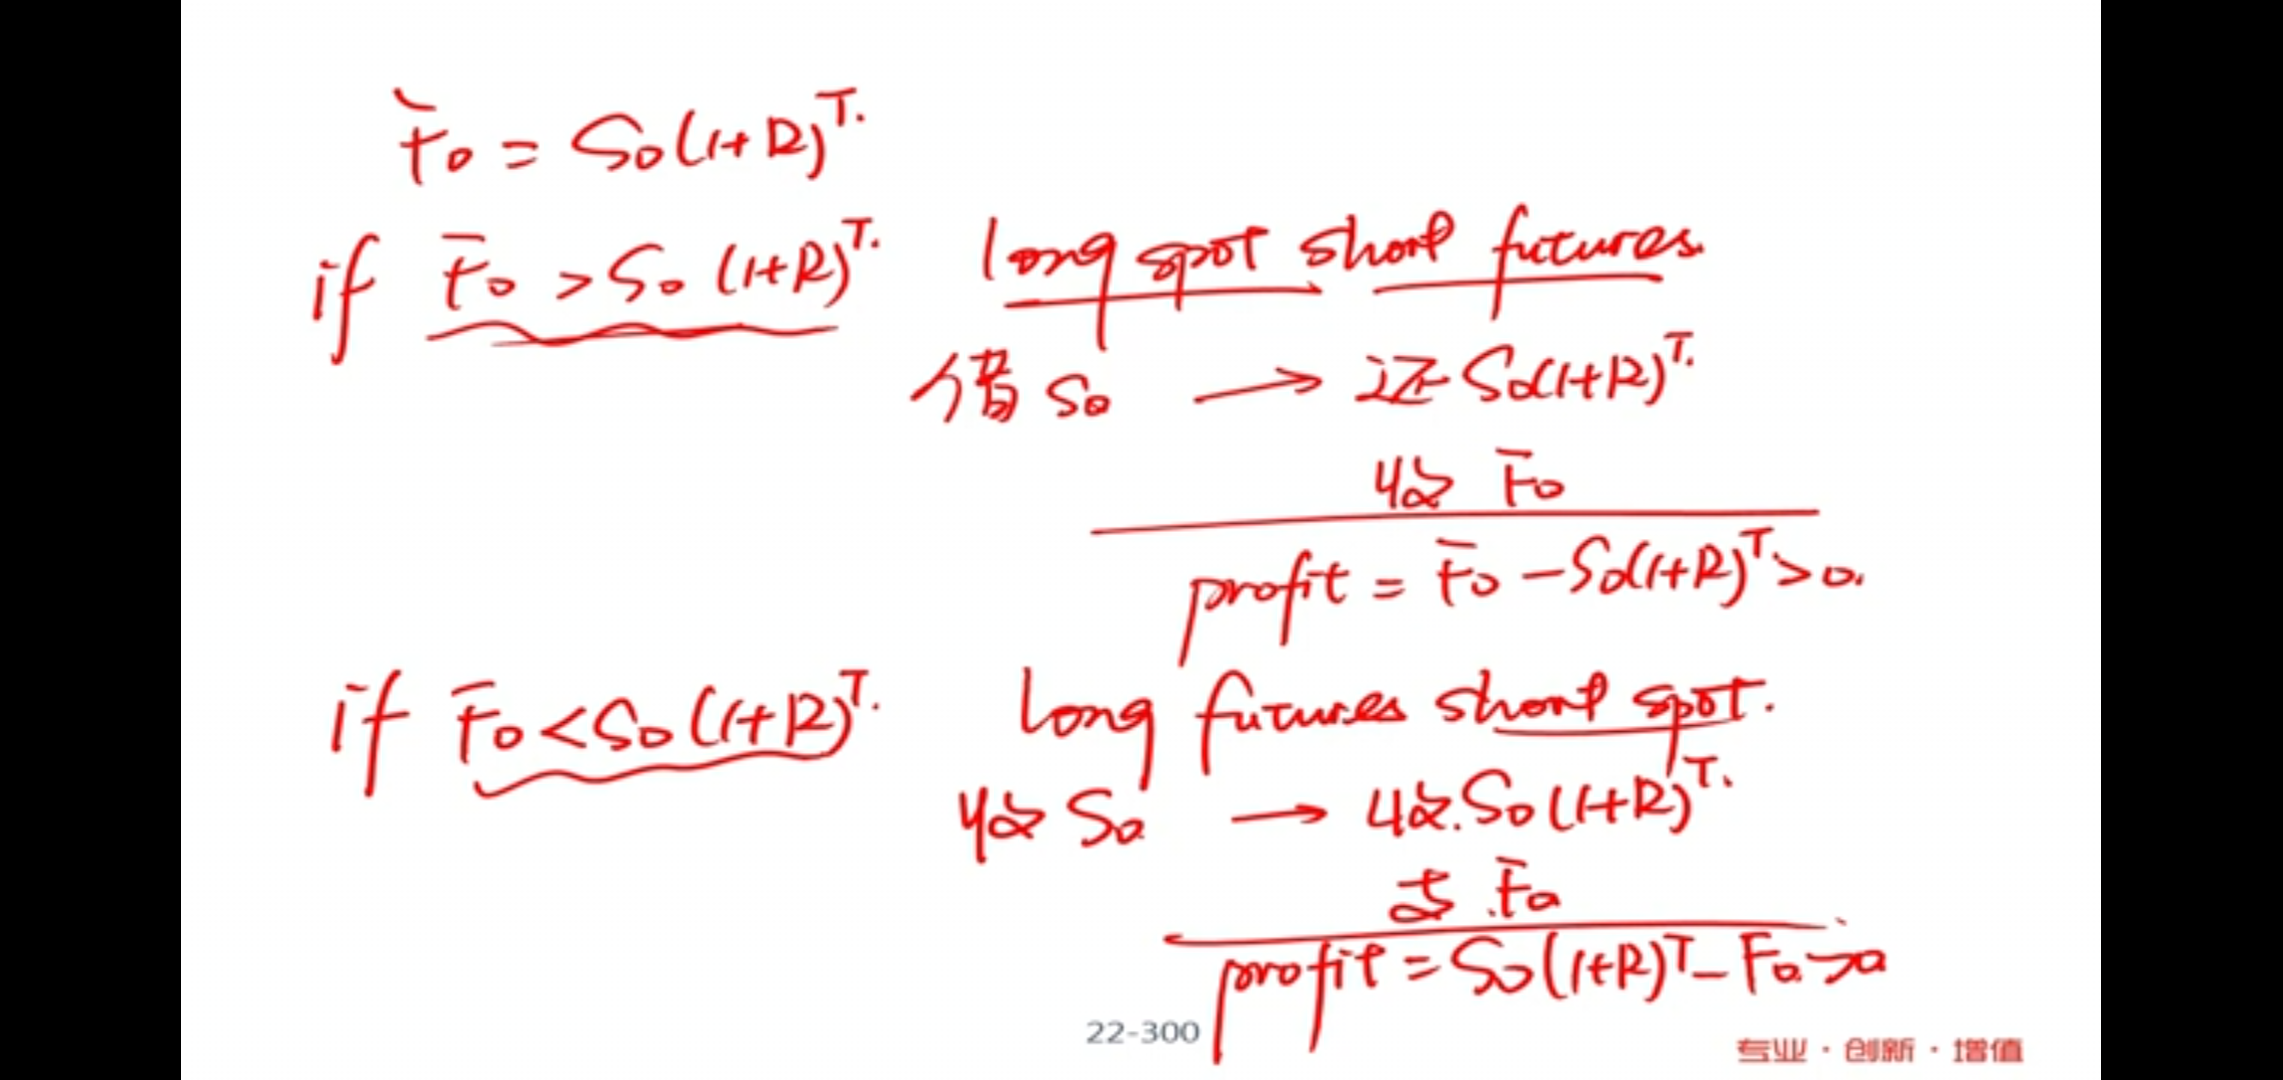 F₀ = S₀(1+R)ᵀ.
if F₀ > S₀(1+R)ᵀ. long spot short futures.
借 S₀ → 还 S₀(1+R)ᵀ.
收 F₀
profit = F₀ - S₀(1+R)ᵀ > 0.
if F₀ < S₀(1+R)ᵀ. long futures short spot.
收 S₀ → 收 S₀(1+R)ᵀ.
支 F₀
profit = S₀(1+R)ᵀ - F₀ > 0
22-300
专业·创新·增值